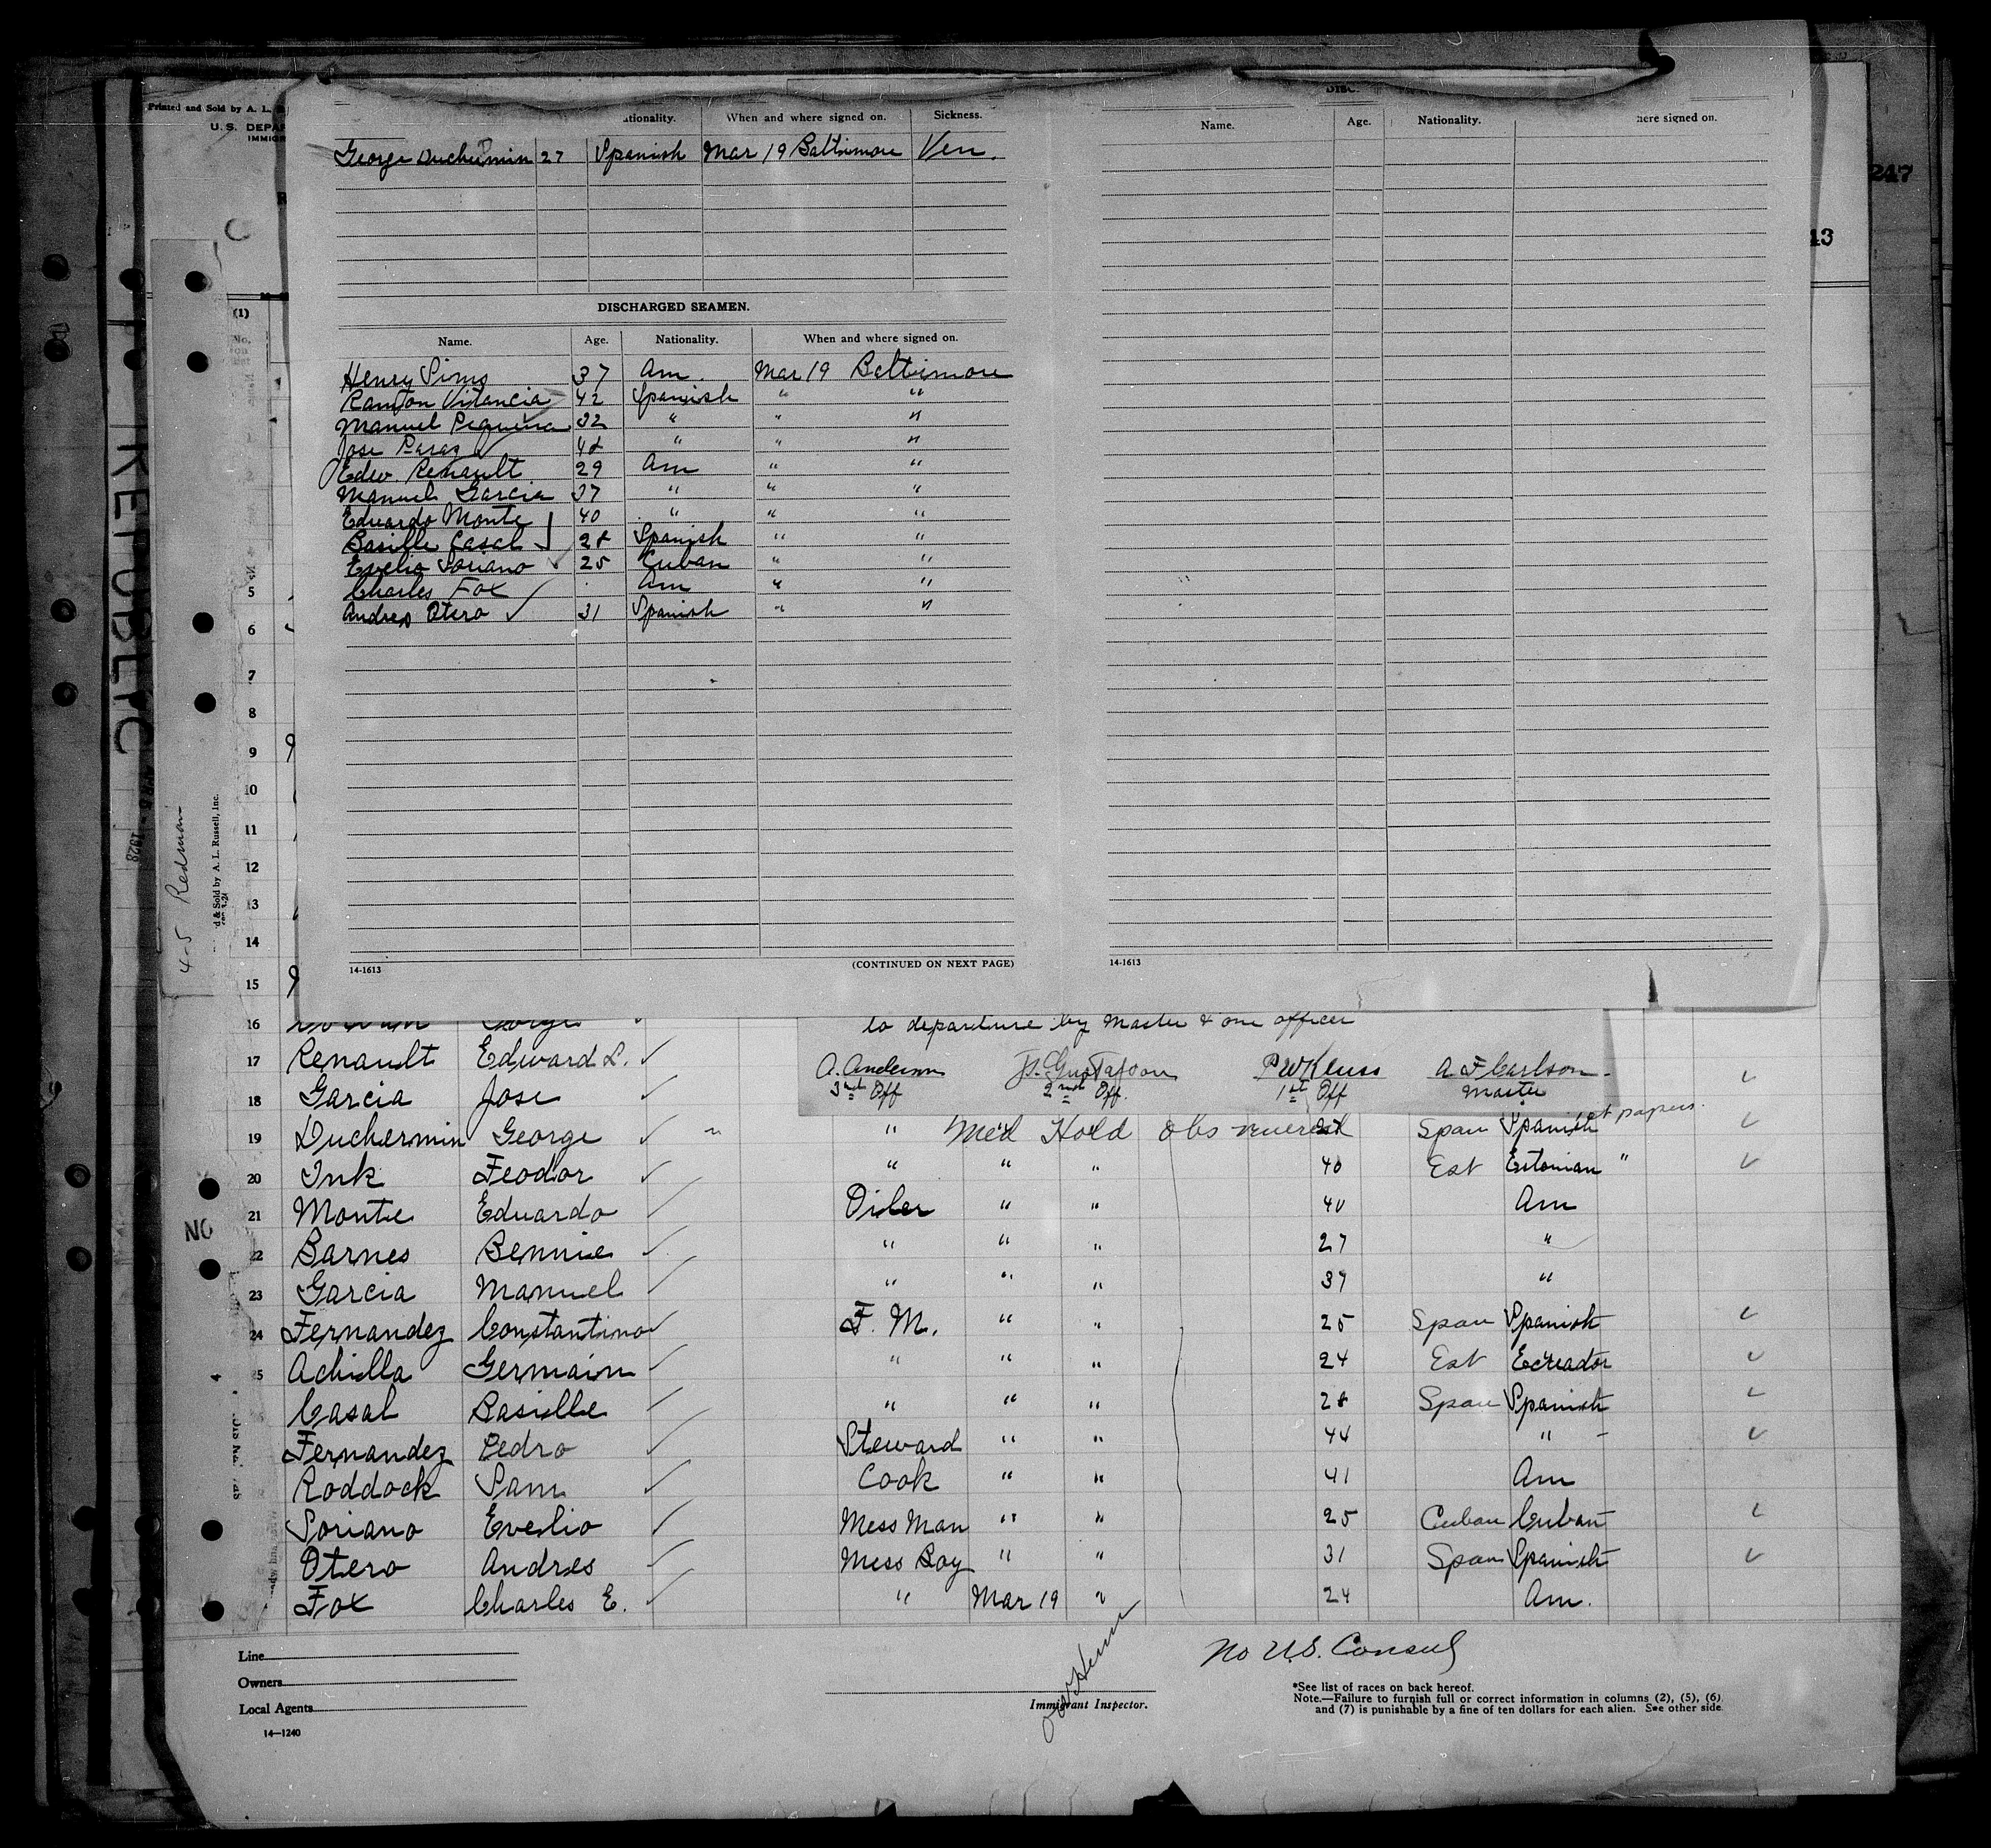 Printed and Sold by A. L.
U. S. DEPA
IMMIG
247
13
REPUBLIC
1928
4-5 Redman
d & Sold by A. L. Russell, Inc.
ationality. When and where signed on. Sickness.
George Duchermin 27 Spanish Mar 19 Baltimore Ven.
DISCHARGED SEAMEN.
Name. Age. Nationality. When and where signed on.
Henry Sims 37 Am. Mar 19 Baltimore
Ramon 42 Spanish " "
Manuel 32 " " "
Jose 48 " " "
Edw. Renault 29 Am " "
Manuel Garcia 37 " " "
Eduardo Monte 40 " " "
Basille Casal 28 Spanish " "
Evelio Soriano 25 Cuban " "
Charles Fox Am " "
Andres Otero 31 Spanish " "
14-1613 (CONTINUED ON NEXT PAGE)
DISC.
Name. Age. Nationality. here signed on.
14-1613
(1)
No.
5
6
7
8
9
10
11
12
13
14
15
16
to departure by Master & one officer
A. Anderson Gustafson P W Kluss A. F. Carlson
3rd Off 2nd Off. 1st Off Master
17 Renault Edward L.
18 Garcia Jose
19 Duchermin George " Med Hold obs 27 Span Spanish papers.
20 Ink Feodor " " " 40 Est Estonian "
21 Monte Eduardo Oiler " " 40 Am
NO
22 Barnes Bennie " " " 27 "
23 Garcia Manuel " " " 37 "
24 Fernandez Constantino F. M. " " 25 Span Spanish
25 Achilla Germain " " " 24 Est Ecuador
Casal Basille " " " 28 Span Spanish
Fernandez Pedro Steward " " 44 "
Roddock Sam Cook " " 41 Am
Soriano Evelio Mess Man " " 25 Cuban Cuban
Otero Andres Mess Boy " " 31 Span Spanish
Fox Charles E. " Mar 19 " 24 Am.
No U.S. Consul
Line
Owners
Local Agents
14—1240
Immigrant Inspector.
*See list of races on back hereof.
Note.—Failure to furnish full or correct information in columns (2), (5), (6)
and (7) is punishable by a fine of ten dollars for each alien. See other side.